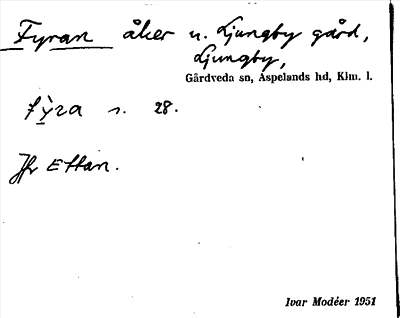 Fyran åker u. Ljungby gård,
Ljungby,
Gårdveda sn, Aspelands hd, Klm. l.
fỳra s. 28.
Jfr Ettan.
Ivar Modéer 1951